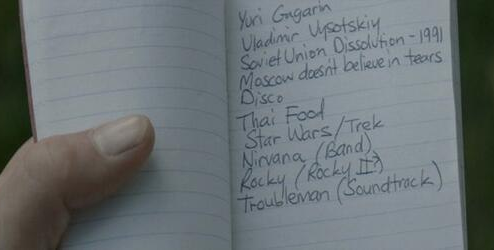 Yuri Gagarin
Vladimir Vysotskiy
Soviet Union Dissolution - 1991
Moscow doesn't believe in tears
Disco
Thai Food
Star Wars/Trek
Nirvana (Band)
Rocky (Rocky II?)
Troubleman (Soundtrack)